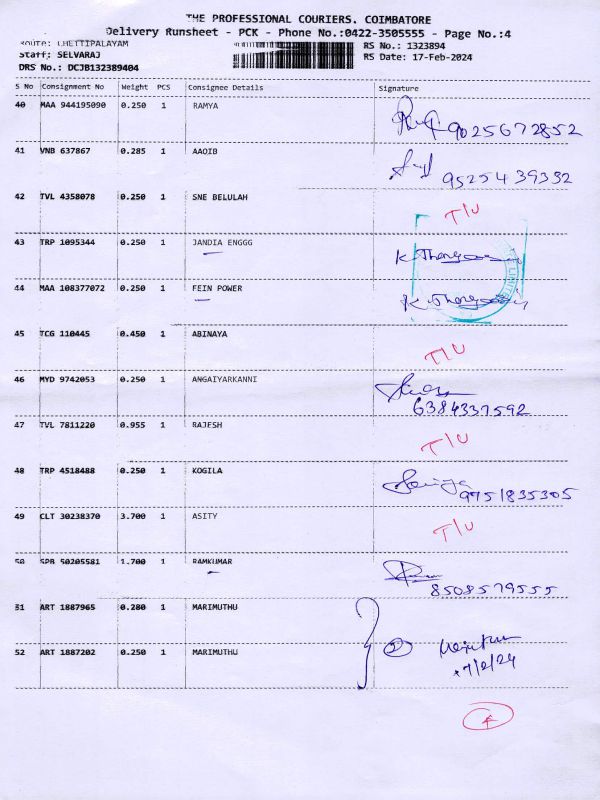 THE PROFESSIONAL COURIERS. COIMBATORE
Delivery Runsheet - PCK - Phone No.:0422-3505555 - Page No.:4
Route: CHETTIPALAYAM
RS No.: 1323894
Staff: SELVARAJ
RS Date: 17-Feb-2024
DRS No.: DCJB132389404
S No Consignment No Weight PCS Consignee Details Signature
40 MAA 944195090 0.250 1 RAMYA
9025672852
41 VNB 637867 0.285 1 AAOIB
9525439332
42 TVL 4358078 0.250 1 SNE BELULAH
T/U
43 TRP 1095344 0.250 1 JANDIA ENGGG
44 MAA 108377072 0.250 1 FEIN POWER
45 TCG 110445 0.450 1 ABINAYA
T/U
46 MYD 9742053 0.250 1 ANGAIYARKANNI
6384337592
47 TVL 7811220 0.955 1 RAJESH
T/U
48 TRP 4518488 0.250 1 KOGILA
9751835305
49 CLT 30238370 3.700 1 ASITY
T/U
50 SPB 50205581 1.700 1 RAMKUMAR
8508579555
51 ART 1887965 0.280 1 MARIMUTHU
52 ART 1887202 0.250 1 MARIMUTHU
2